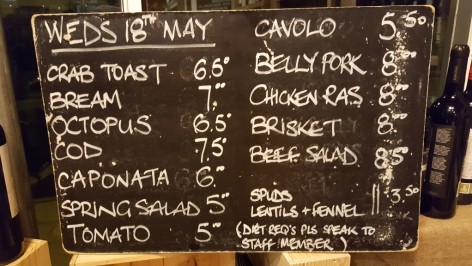 WEDS 18TH MAY
CRAB TOAST 6.5°
BREAM 7.°°
OCTOPUS 6.5°
COD 7.5°
CAPONATA 6.°°
SPRING SALAD 5°°
TOMATO 5°°
CAVOLO 5.50
BELLY PORK 8°°
CHICKEN RAS 8°°
BRISKET 8.°°
BEEF SALAD 8.50
SPUDS
LENTILS + FENNEL || 3.50
(DIET REQ'S PLS SPEAK TO
STAFF MEMBER)